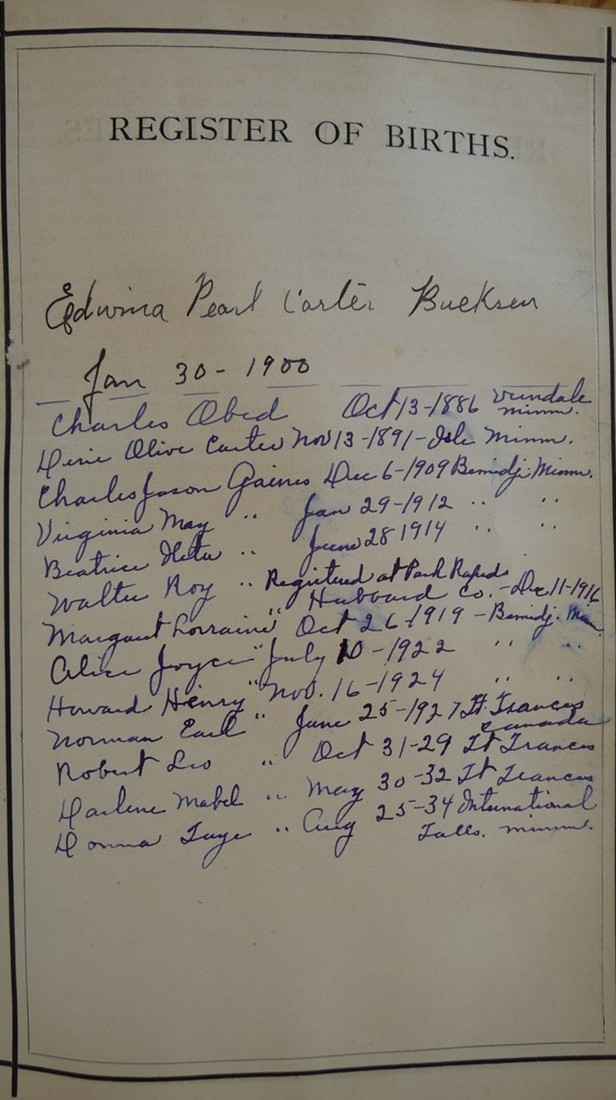 REGISTER OF BIRTHS.
Edwina Pearl Carter Bucksen
Jan 30 - 1900
Charles Obed Oct 13-1886 Verndale Minn.
Olive Carter Nov 13-1891 - Isle Minn.
Charles Jason Gaines Dec 6-1909 Bemidji Minn.
Virginia May " Jan 29-1912 " "
Beatrice Neta " June 28 1914 " "
Walter Roy " Registered at Park Rapids
Hubbard Co. - Dec 11-1916
Margaret Lorraine " Oct 26-1919 - Bemidj. Minn
Alice Joyce " July 10-1922 " "
Howard Henry " Nov. 16-1924 " "
Norman Earl " June 25-1927 Ft. Frances Canada
Robert Leo " Oct 31-29 Ft Frances
Darlene Mabel " May 30-32 Ft Frances
Donna Faye " Aug 25-34 International
Falls. Minn.